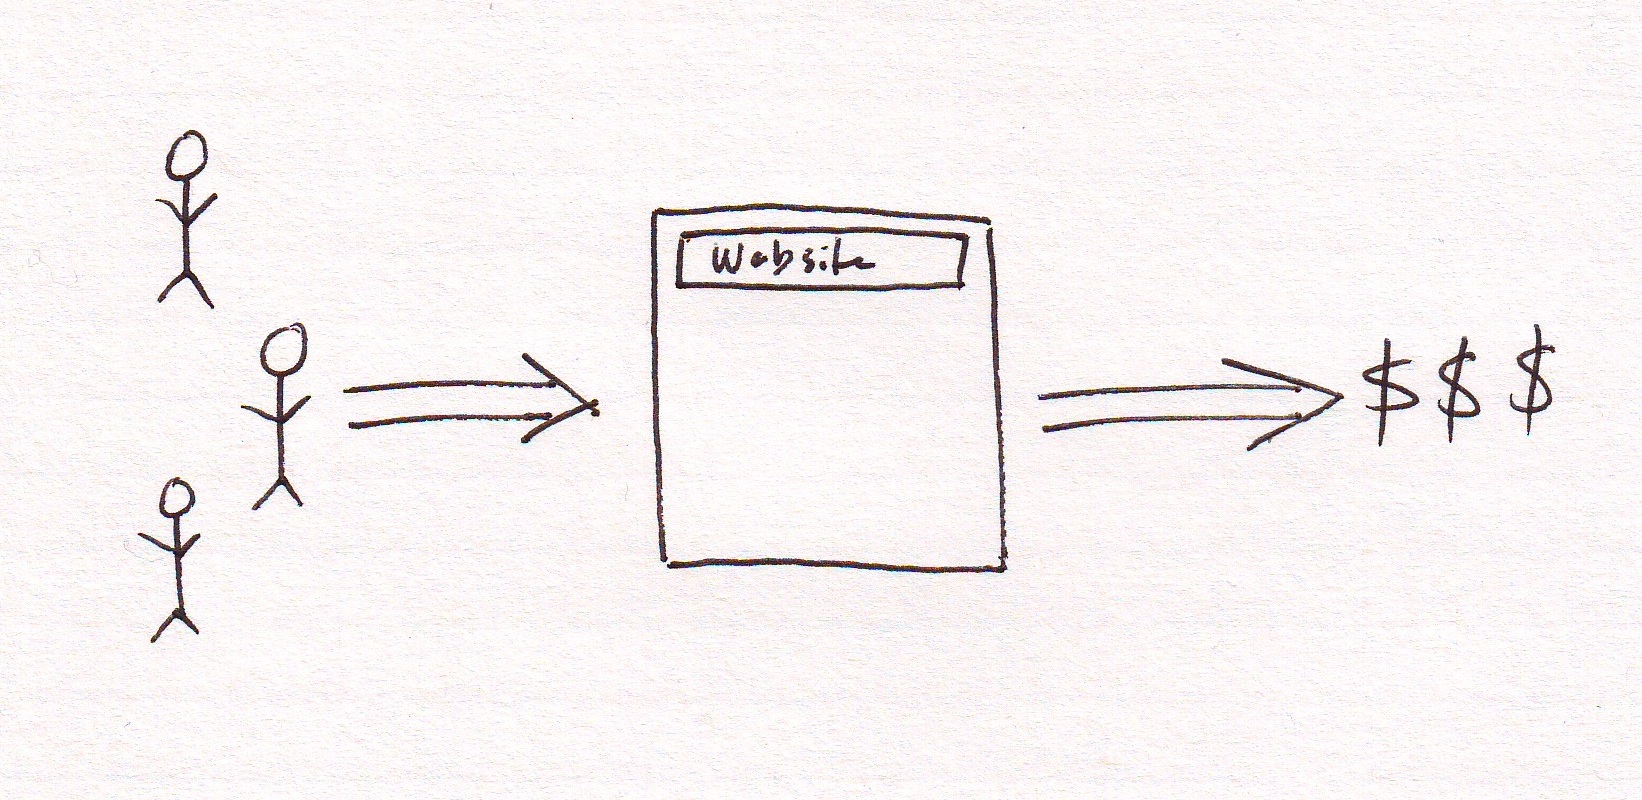 Website
$ $ $